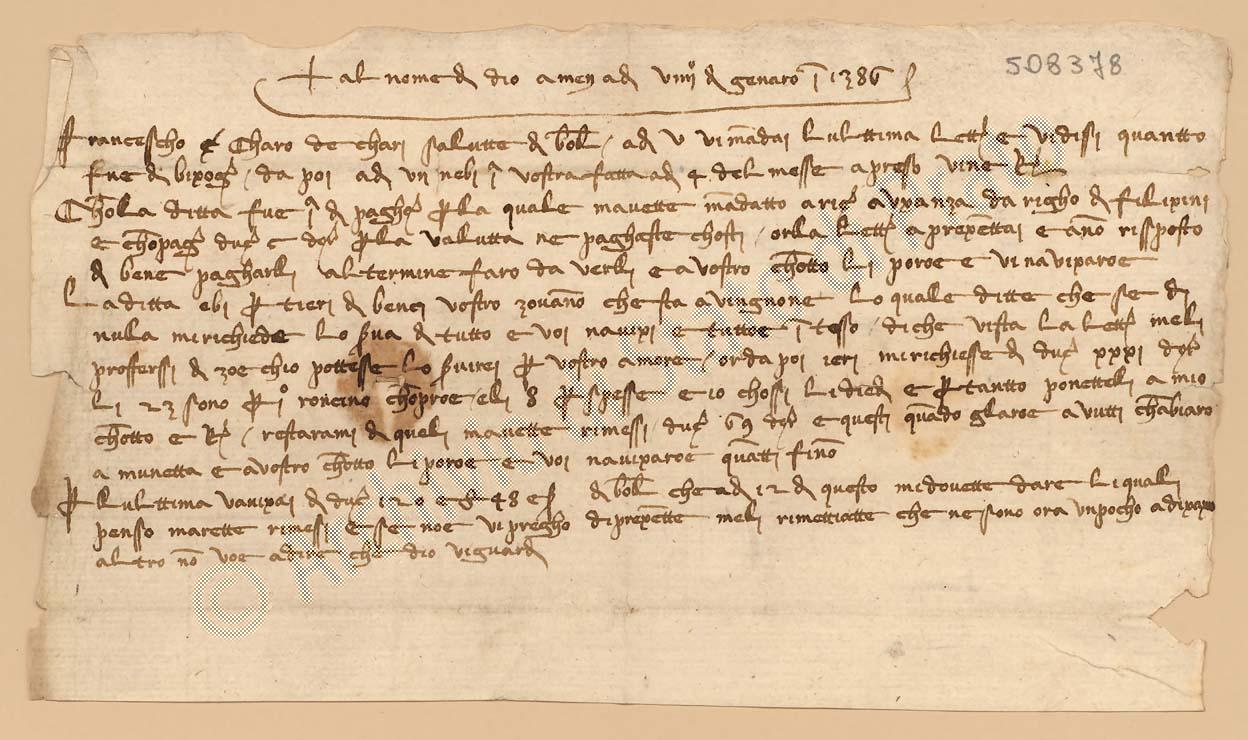 508378
+ al nome d dio amen ad viiij d genaro ī 1386
Franceschо e Charo de chari salutte d bol / ad v vi mādai l ulttima lettª e vidissi quantto
fue d bixogº / da poi ad vij nebi ī vostra fatta ad 4 del messe apresso vi ne
Chola ditta fue ī d paghª p la quale mavette mādatto a uxanza da righo d filipini
e chōpagª duc c p la valutta ne paghaste chosti / or la lettª aprexēttai e āno rissposto
d bene pagharli al termine faro da verli e a vostro chōtto li poroe e vi naviparoe
La ditta ebi p tieri d benci vostro zovano che sta a vingnone lo quale ditte che se di
nula mi richiede lo sva d tutto e voi navixi e tuttoe ī tesso / di che vista la lettª meli
proffersi d zoe chio pottesse lo svirei p vostro amore / or da poi ieri mi richiesse d duc xxxi
li 12 sono p 1º roncino chōproe eli 8 p spesse e io chossi li diedi e p tantto ponetteli a mio
chōtto e / restarami d queli mavette rimessi / duc 69 e questi quādo glaroe a vutti chābiaro
a munetta e a vostro chōtto li poroe e voi naviparoe quātti fino
P l ulttima vavixai d duc 120 e 48 d bol che ad 12 d questo mi dovette dare li quali
penso marette rimessi e se noe vi pregho di prexētte meli rimettiatte che ne sono ora un pocho
altro nō voe a dire che dio vi guardi
©